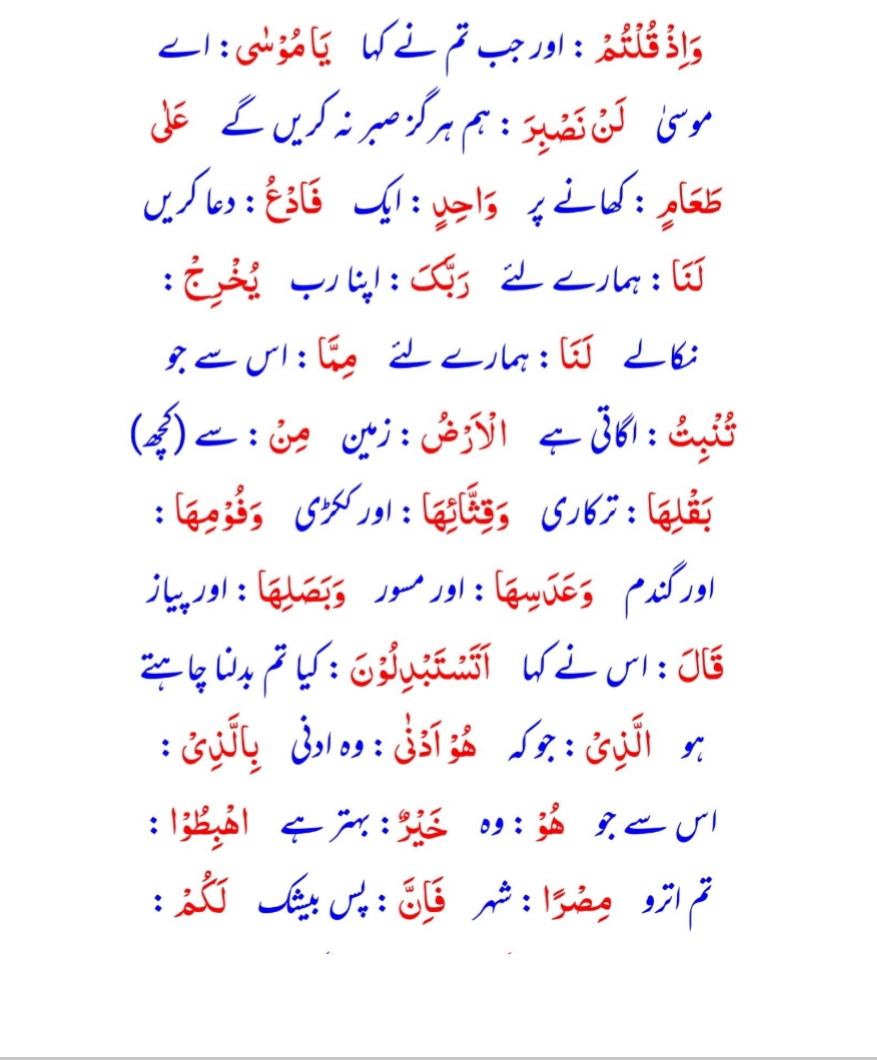 وَاِذْ قُلْتُمْ : اور جب تم نے کہا يَا مُوْسٰى : اے
موسیٰ لَنْ نَصْبِرَ : ہم ہرگز صبر نہ کریں گے عَلٰى
طَعَامٍ : کھانے پر وَاحِدٍ : ایک فَادْعُ : دعا کریں
لَنَا : ہمارے لئے رَبَّکَ : اپنا رب يُخْرِجْ :
نکالے لَنَا : ہمارے لئے مِمَّا : اس سے جو
تُنْبِتُ : اگاتی ہے الْاَرْضُ : زمین مِنْ : سے (کچھ)
بَقْلِهَا : ترکاری وَقِثَّائِهَا : اور ککڑی وَفُوْمِهَا :
اور گندم وَعَدَسِهَا : اور مسور وَبَصَلِهَا : اور پیاز
قَالَ : اس نے کہا اَتَسْتَبْدِلُوْنَ : کیا تم بدلنا چاہتے
ہو الَّذِىْ : جو کہ هُوْ اَدْنٰى : وہ ادنی بِالَّذِىْ :
اس سے جو هُوْ : وہ خَيْرٌ : بہتر ہے اهْبِطُوْا :
تم اترو مِصْرًا : شہر فَاِنَّ : پس بیشک لَکُمْ :